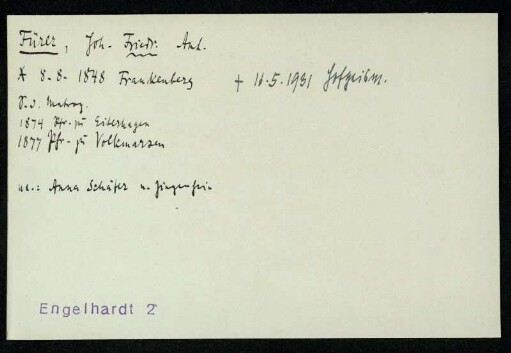 Fürer, Joh. Friedr. Ant.
* 8-8-1848 Frankenberg + 16.5.1931 Hofgeism.
S. v.
1874 Pfr. zu Eiterhagen
1877 Pfr. zu Volkmarsen
ux.: Anna Schäfer v. Ziegenhain
Engelhardt 2